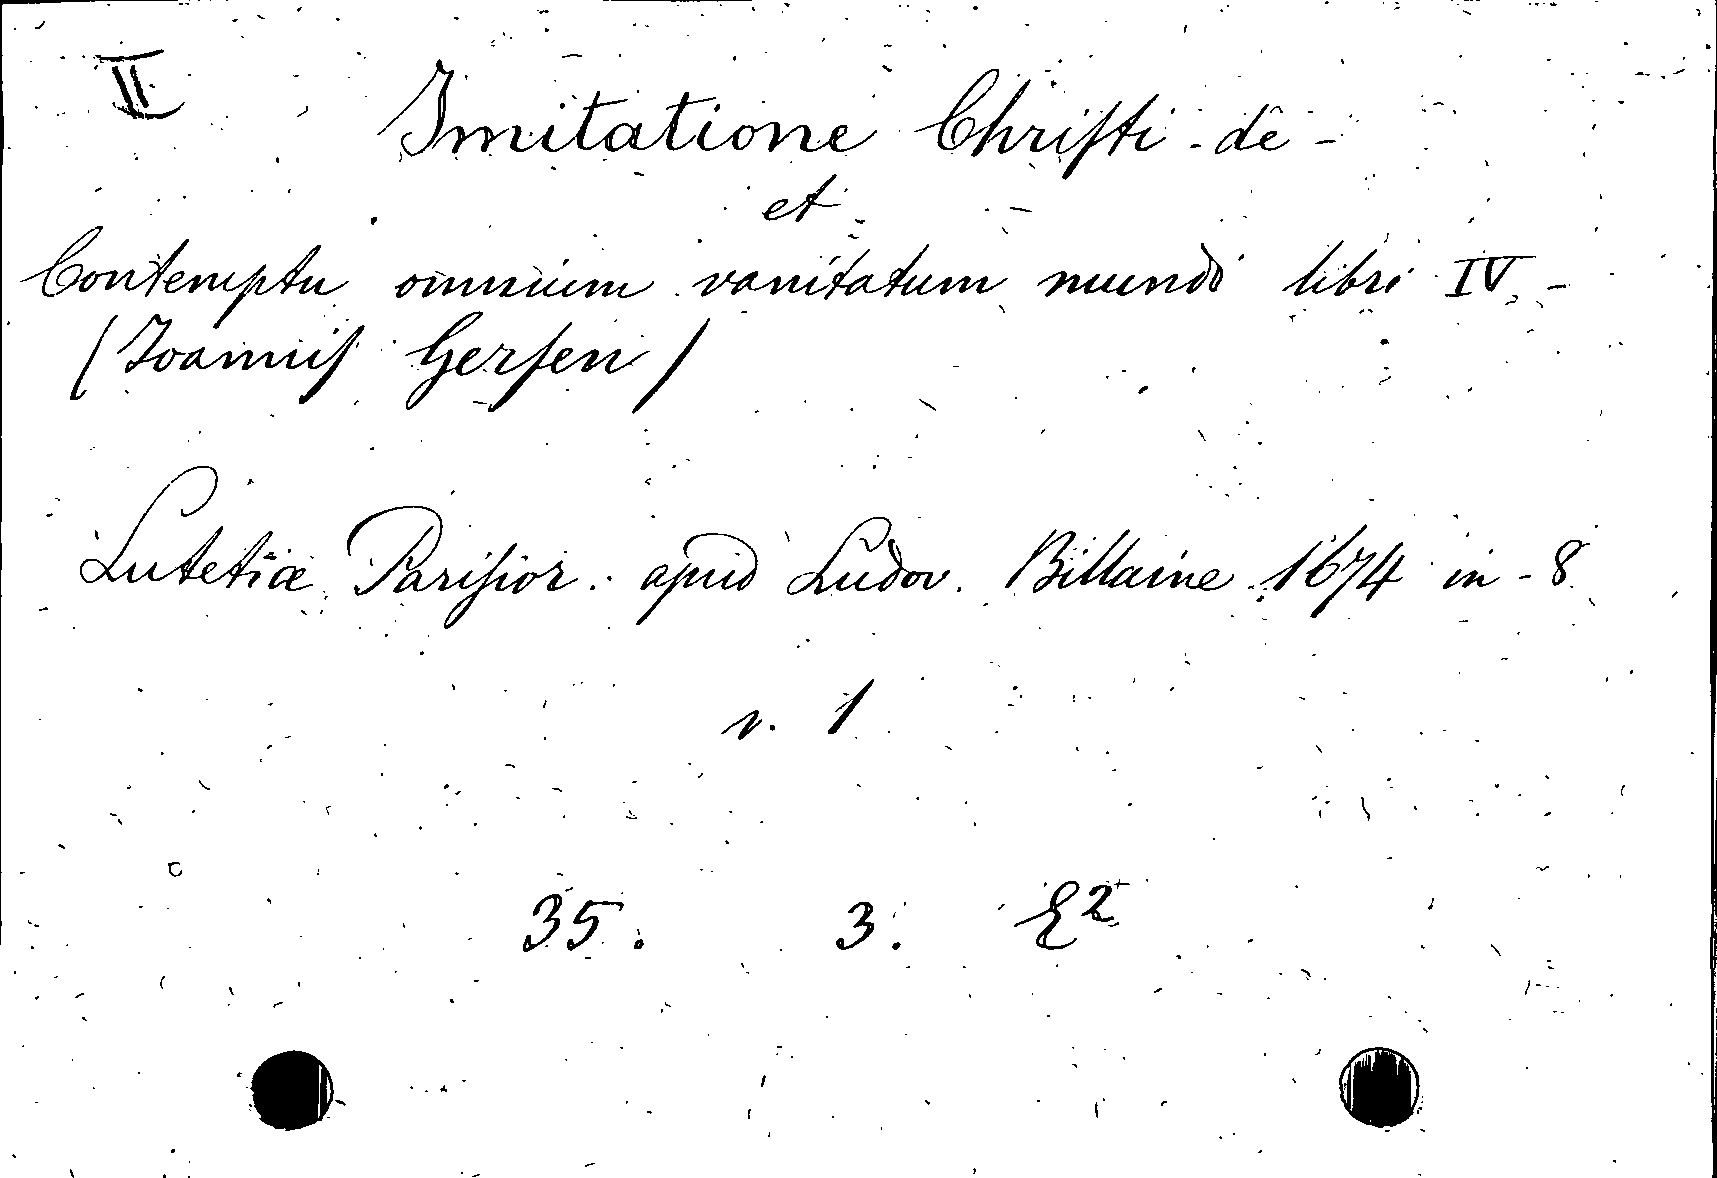 II
Imitatione Chriſti - de -
et
Contemptu omnium vanitatum mundi libri IV. -
(Joanniſ Gerſen)
Lutetiæ Pariſior. apud Ludov. Billaine 1674 in - 8
v. 1
35. 3. E²